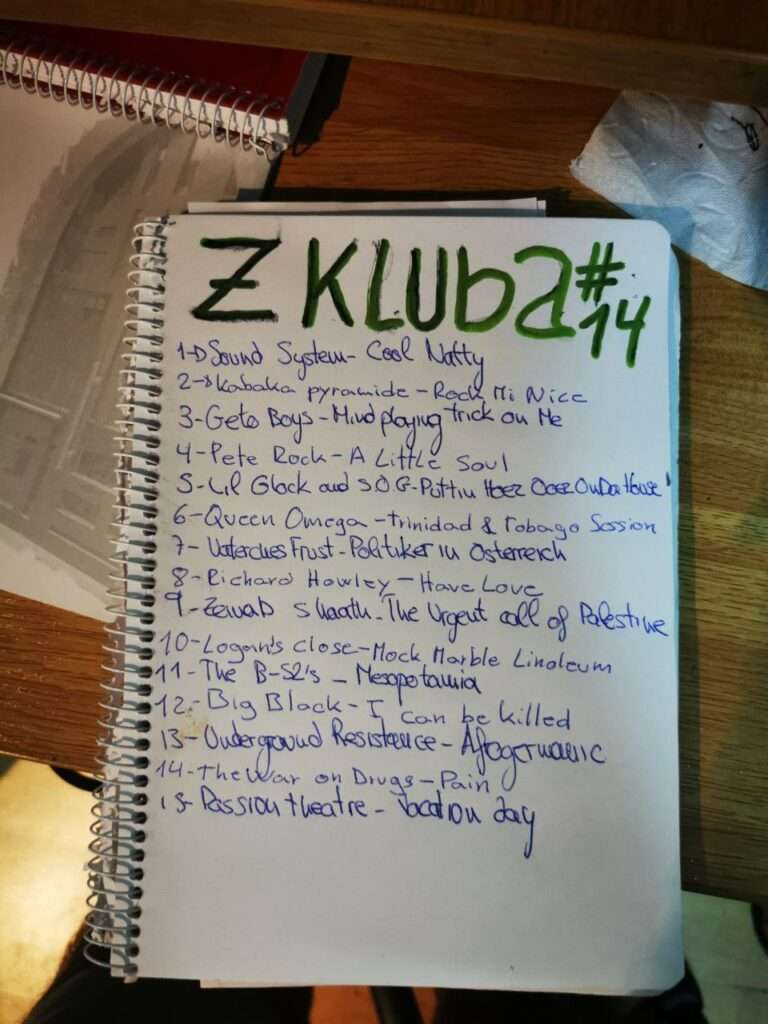 Z KLUbA #14
1-D Sound System - Cool Natty
2-> Kabaka pyramide - Rock Mi Nice
3- Geto Boys - Mind playing trick on Me
4- Pete Rock - A Little Soul
5- Lil Glock and S.O.G - Puttin Hoez Ooez On Da House
6- Queen Omega - Trinidad & Tobago Session
7- Vaterches Frust - Politiker in Österreich
8- Richard Hawley - Have Love
9- Zeinab Shaath - The Urgent call of Palestine
10- Logan's Close - Mock Marble Linoleum
11- The B-52's - Mesopotamia
12- Big Black - I can be killed
13- Underground Resistence - Afrogermanic
14- The War on Drugs - Pain
15- Passion theatre - Vacation day